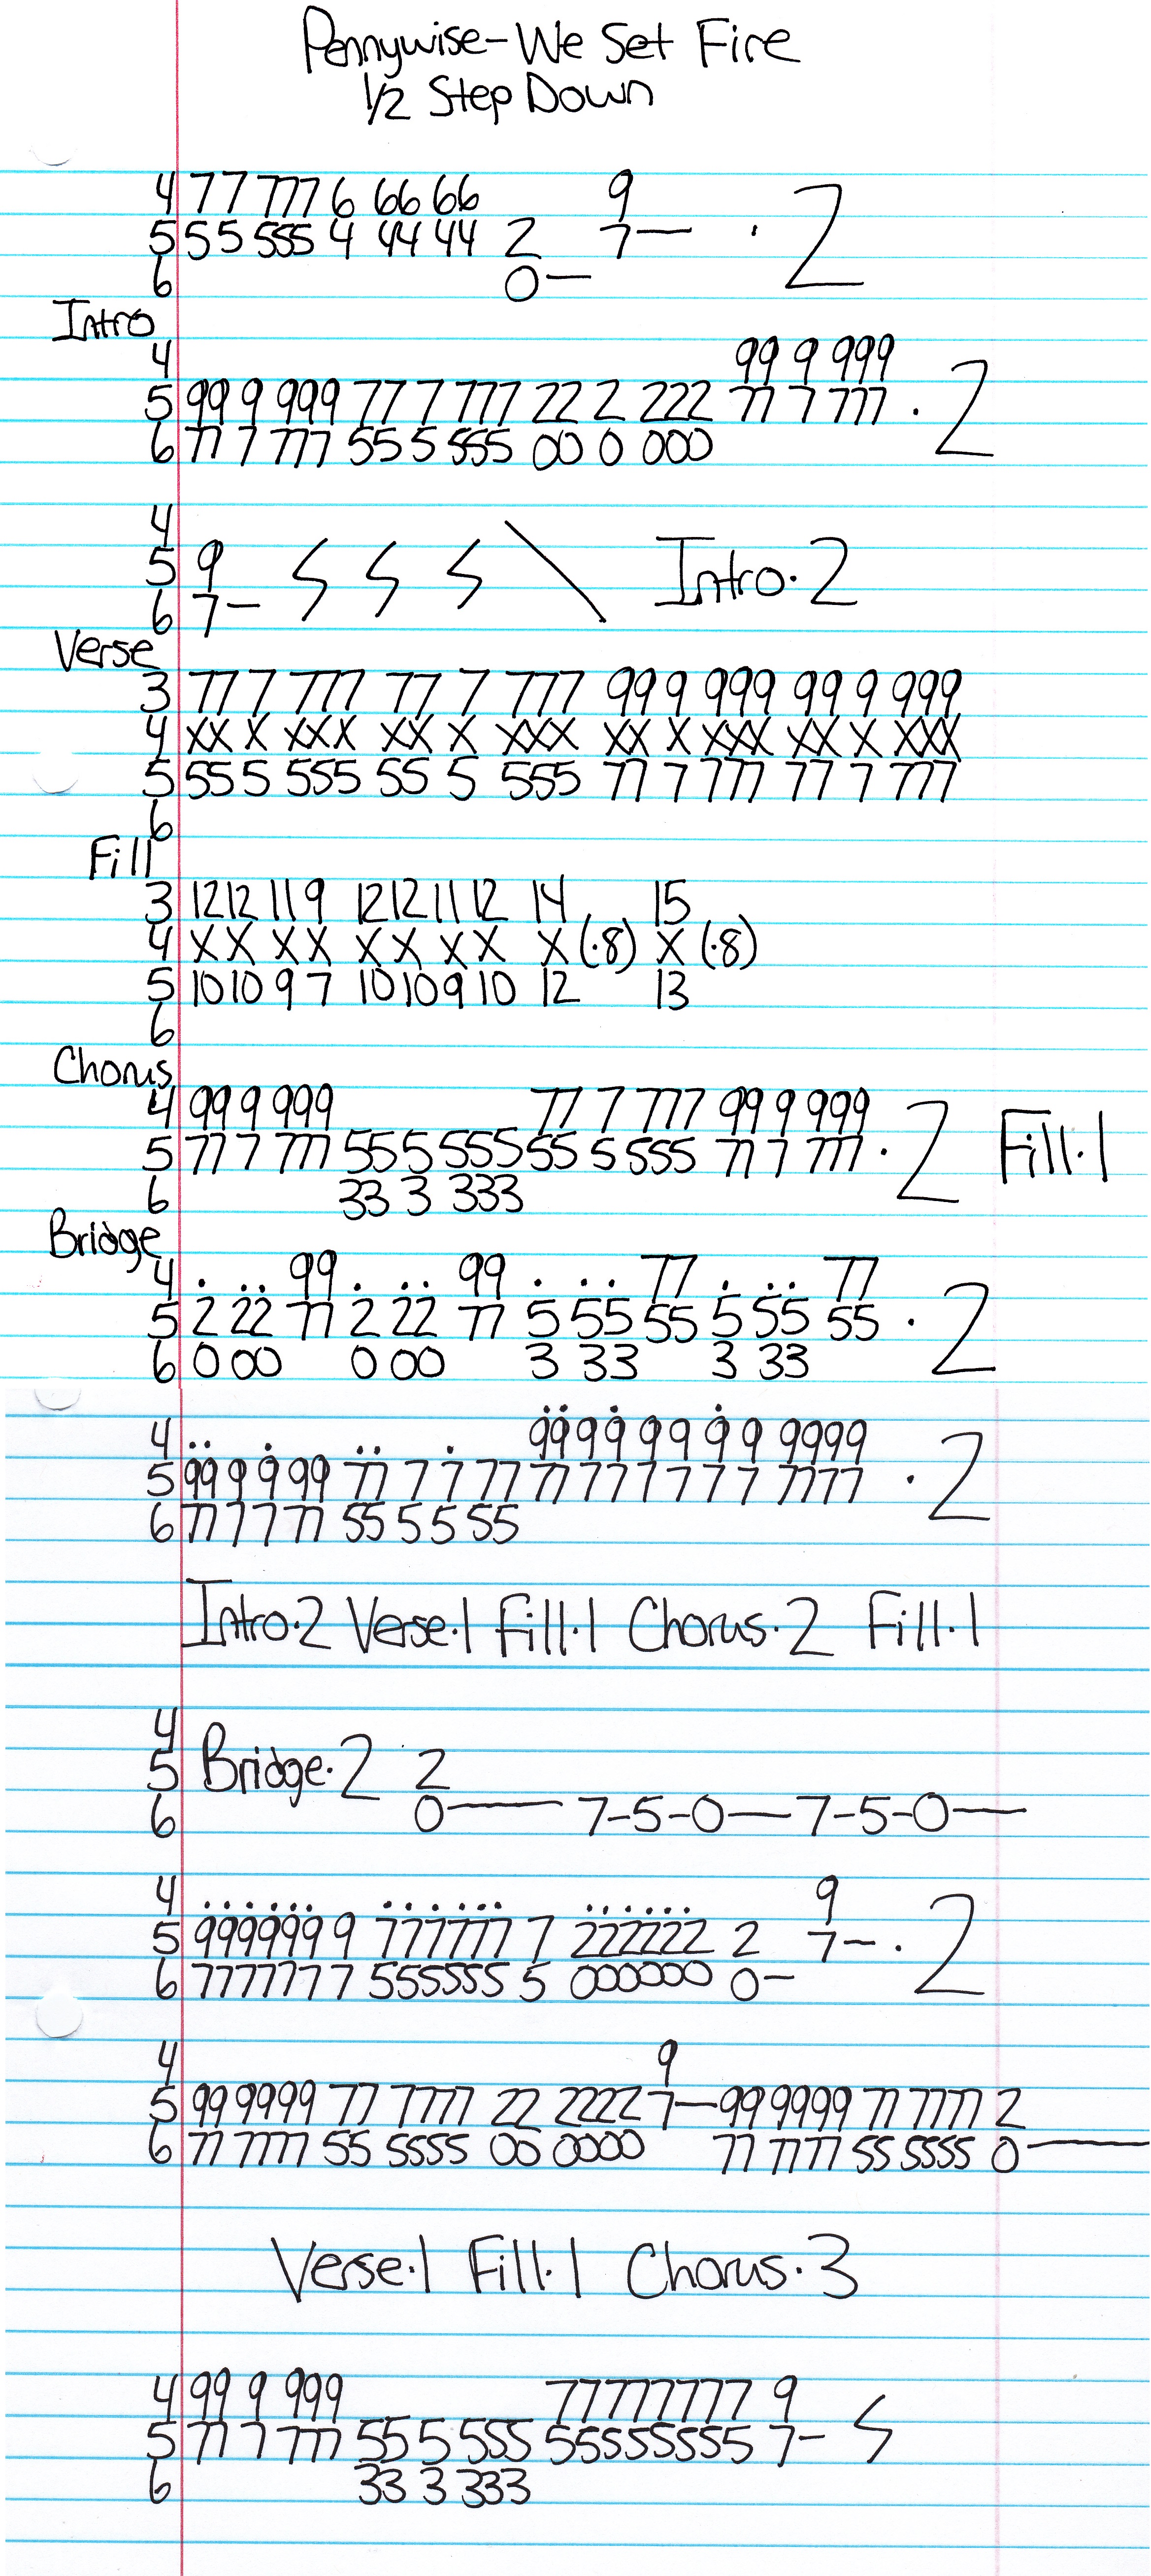 Pennywise - We Set Fire
1/2 Step Down
4 77 777 6 66 66 9
5 55 555 4 44 44 2 7— · 2
6 0—
Intro
4 99 9 999
5 99 9 999 77 7 777 22 2 222 77 7 777 · 2
6 77 7 777 55 5 555 00 0 000
4
5 9 Intro·2
6 7—
Verse
3 77 7 777 77 7 777 99 9 999 99 9 999
4 XX X XXX XX X XXX XX X XXX XX X XXX
5 55 5 555 55 5 555 77 7 777 77 7 777
6
Fill
3 12 12 11 9 12 12 11 12 14 15
4 X X X X X X X X X (·8) X (·8)
5 10 10 9 7 10 10 9 10 12 13
6
Chorus
4 99 9 999 77 7 777 99 9 999
5 77 7 777 55 5 555 55 5 555 77 7 777 · 2 Fill·1
6 33 3 333
Bridge
4 . .. 99 . .. 99 . .. 77 . .. 77
5 2 22 77 2 22 77 5 55 55 5 55 55 · 2
6 0 00 0 00 3 33 3 33
4 99 9 9 9 9 9 9 9999
5 99 9 9 99 77 7 7 77 77 7 7 7 7 7 7 7777 · 2
6 77 7 7 77 55 5 5 55
Intro·2 Verse·1 Fill·1 Chorus·2 Fill·1
4
5 Bridge·2 2
6 0—— 7-5-0—7-5-0—
4 ...... ...... ...... 9
5 999999 9 777777 7 222222 2 7— · 2
6 777777 7 555555 5 000000 0—
4 9
5 99 9999 77 7777 22 2222 7—99 9999 77 7777 2
6 77 7777 55 5555 00 0000 77 7777 55 5555 0——
Verse·1 Fill·1 Chorus·3
4 99 9 999 77777777 9
5 77 7 777 55 5 555 55555555 7—
6 33 3 333